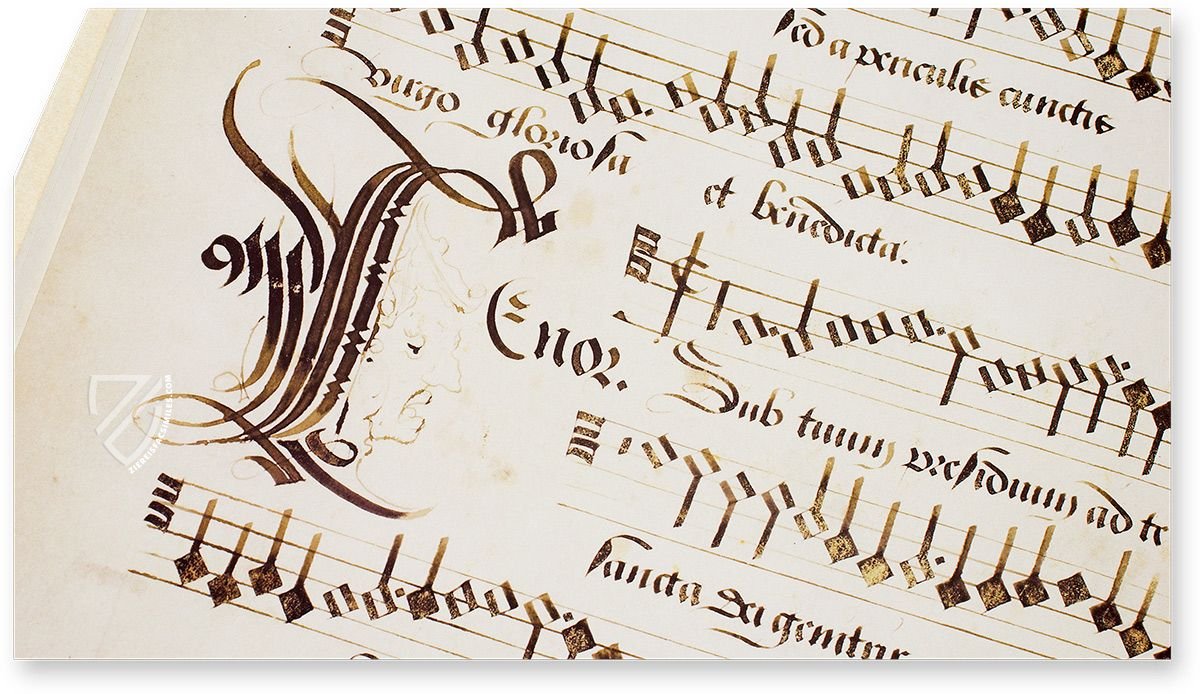 sed a periculis cunctis
virgo gloriosa
et benedicta.
Tenor.
Sub tuum presidium ad te
sancta dei genitrix
ZIEREIS FACSIMILES.COM